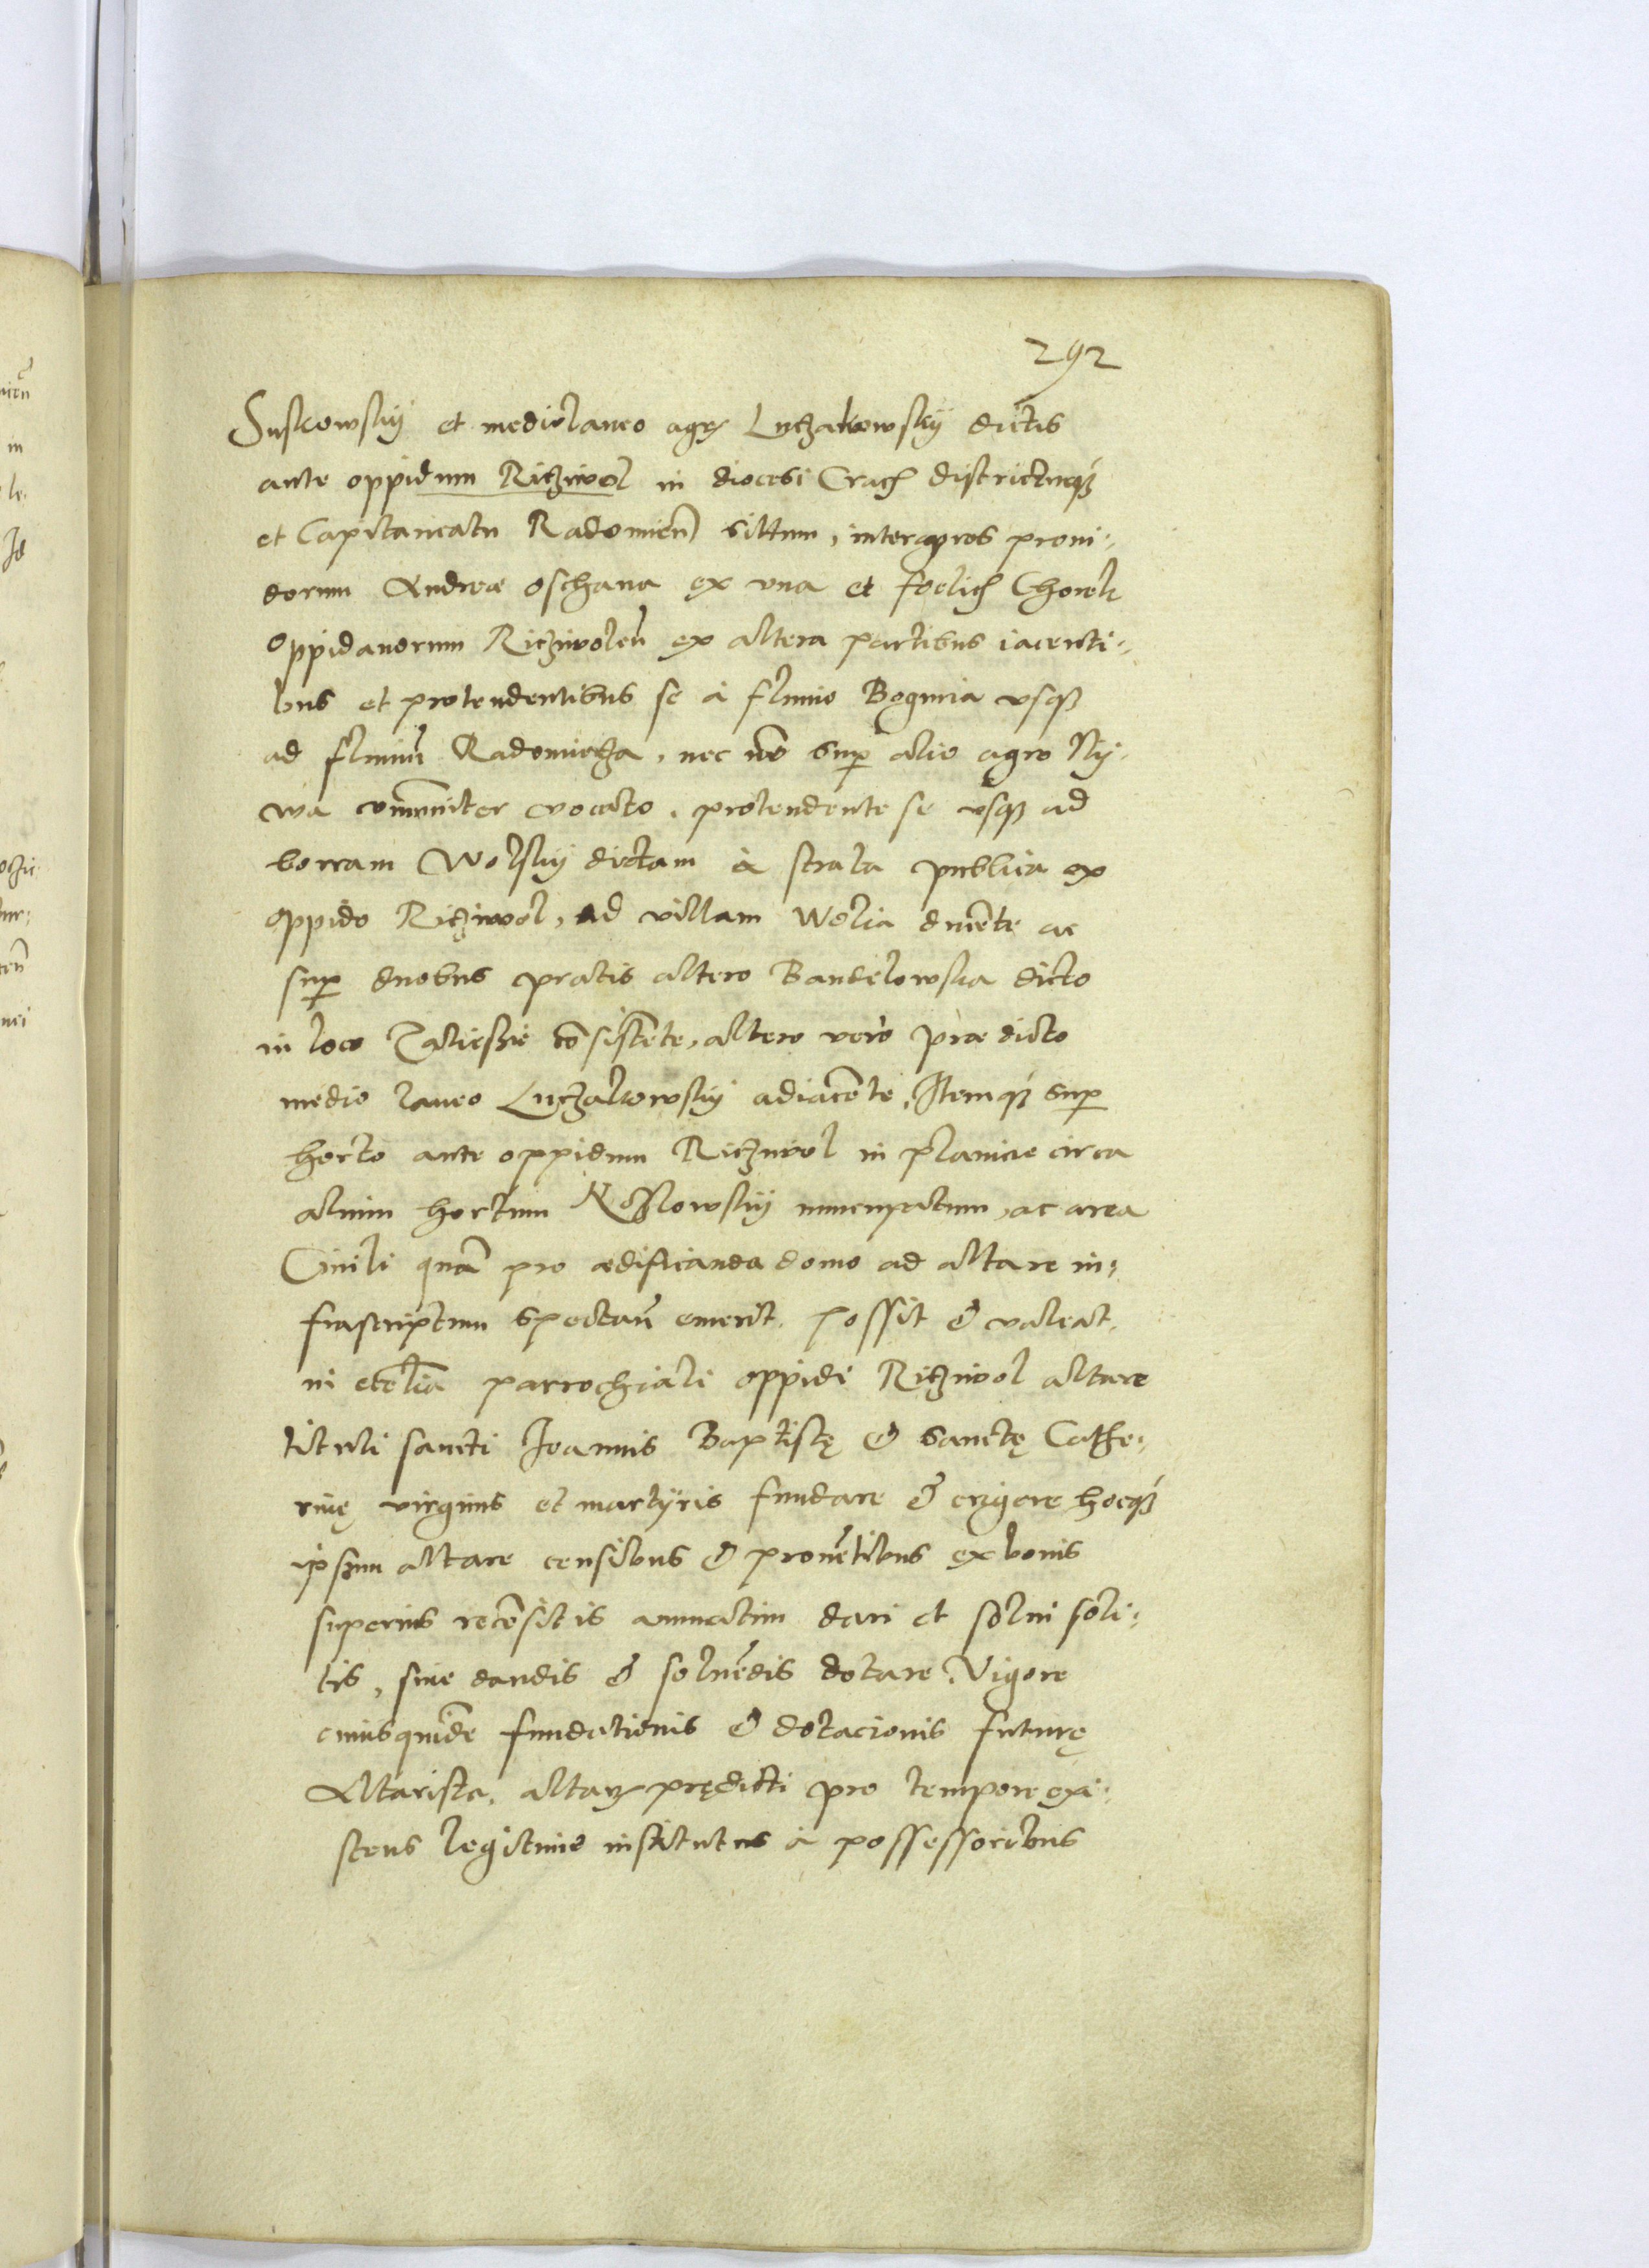 292
Suskowskij et mediolaneo agrj Luczakowskij dictis
ante oppidum Ricziwol in diocesi Crac̄ districtuq̃
et Capitaneatu Radomien̄ sittum, inter agros proui-
dorum Andreæ oschana ex vna et foelic̄ Chorek
Oppidanorum Riczivolen̄ ex altera partibus iacenti-
bus et protendentibus se à fluuio Bogunia vsq̃
ad fluuiū Radomircza, nec nō sup alio agro Nij-
wa com̄uniter vocato, protendente se vsq̃ ad
borram Wolskij dictam à strata publica ex
oppido Ricziwol, ad villam Wolia ducēte ac
sup duobus pratis altero Bandelowska dicto
in loco Zaliesie cōsistēte, altero verò prædicto
medio laneo Luczakowskij adiacēte, Itemq̃ sup
horto ante oppidum Ricziwol in planicie circa
alium hortum Koslowskij nuncupatum, ac area
Ciuili quā pro ædificanda domo ad altare in-
frascriptum spectan̄ emerit, possit & valeat,
in eccl̄ia parrochiali oppidi Ricziwol altare
tituli sancti Ioannis Baptistę & Sanctę Cathe-
rinę virginis et martyris fundare & erigere hocq̃
ipsum altare censibus & prouētibus ex bonis
superius recēsitis annuatim dari et solui soli-
tis, siue dandis & soluēdis dotare, Vigore
cuiusquidē fundationis & dotacionis futurę
Altarista, altarꝭ prędicti pro tempore exi-
stens legitime institutus à possessoribus